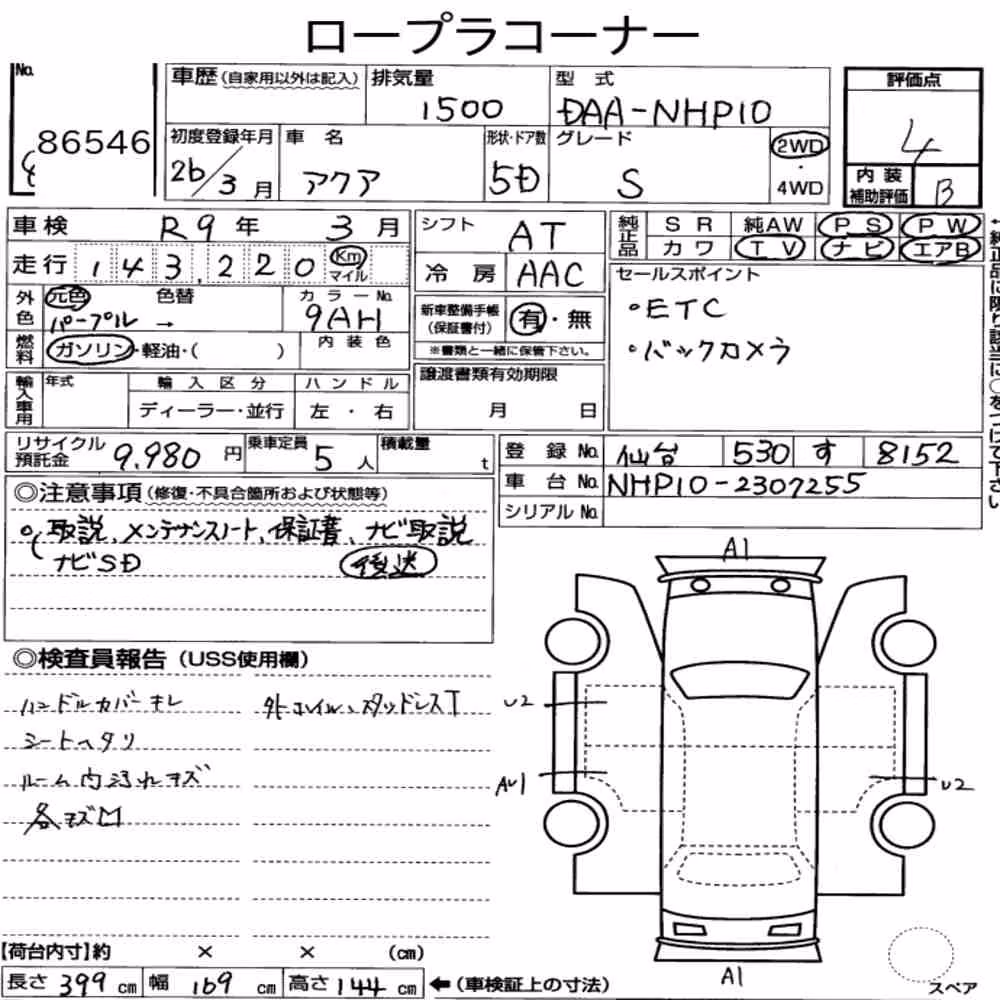 ロープラコーナー
No. 86546
車歴(自家用以外は記入)
排気量 1500
型式 DAA-NHP10
評価点 4
内装補助評価 B
初度登録年月 26/3月
車名 アクア
形状・ドア数 5D
グレード S
2WD・4WD
車検 R9年 3月
走行 143,220 Km マイル
シフト AT
冷房 AAC
純正品 SR 純AW PS PW
カワ TV ナビ エアB
セールスポイント
・ETC
・バックカメラ
外色 元色 パープル → 色替
カラーNo. 9AH
燃料 ガソリン・軽油・( )
内装色
新車整備手帳(保証書付) 有・無
※書類と一緒に保管下さい。
輸入車用 年式 輸入区分 ハンドル
ディーラー・並行 左・右
譲渡書類有効期限
月 日
←純正品に限り該当に○をつけて下さい
リサイクル預託金 9,980円
乗車定員 5人
積載量 t
登録No. 仙台 530 す 8152
車台No. NHP10-2307255
シリアルNo.
◎注意事項(修復・不具合箇所および状態等)
取説、メンテナンスノート、保証書、ナビ取説
ナビSD 後送
◎検査員報告(USS使用欄)
ハンドルカバーキレ
シートヘタリ
ルーム内汚れキズ
各キズ凹
外ホイル、スタッドレスT
A1
U2
AU1
U2
A1
スペア
【荷台内寸】約 × × (cm)
長さ 399 cm 幅 169 cm 高さ 144 cm ←(車検証上の寸法)